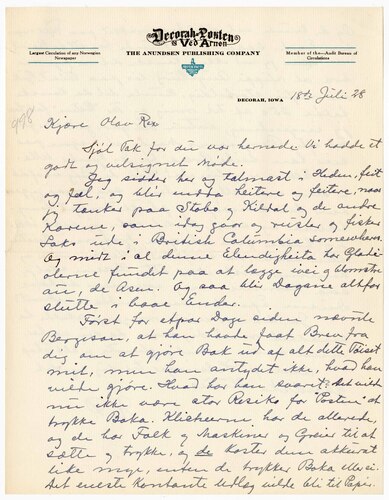 Decorah-Posten
Ved Arnen
Largest Circulation of any Norwegian
Newspaper
THE ANUNDSEN PUBLISHING COMPANY
Member of the—Audit Bureau of
Circulations
DECORAH, IOWA 18th Juli 28
998
Kjære Olav Rex
Sjøl Tak for du var hernede. Vi hadde et
godt og velsignet Møde.
Jeg sidder her og talmast i Heden, feit
og fæl, og blir endda heitere og feitere, naar
jeg tænker paa Stabo og Kildal og de andre
Karene, som idag gaar og rusler og fisker
Laks ude i British Columbia somewhere.
Og midt i al denne Elendigheita har Gladi-
olerne fundet paa at lægge ivei og blomstre
au, de Asen. Og saa blir Dagene altfor
stutte i baae Ender.
Først for etpar Dage siden nævnte
Bergeson, at han hadde faat Brev fra
dig om at gjøre Bok ud af alt dette
mit, men han antydet ikke, hvad han
vilde gjøre. Hvad har han svaret? Det vilde
nu ikke være stor Resiko for "Posten" at
trykke Boka. Klisheerne har de allerede,
og de har Folk og Maskiner og Greier til at
sætte og trykke, og de koster dem akkurat
like mye, enten de trykker Boka eller ei.
Det eneste kontante Udlæg vilde bli til Papir.